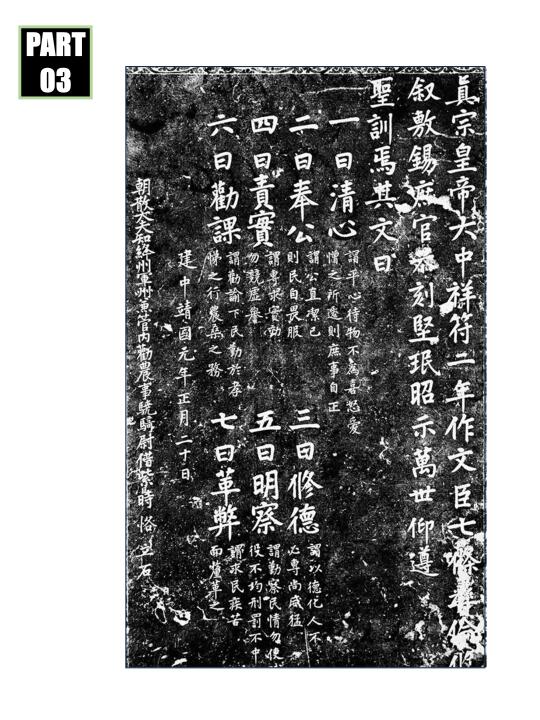 PART
03
眞宗皇帝大中祥符二年作文臣七條
叙敷錫庶官恭刻堅珉昭示萬世仰遵
聖訓焉其文曰
一曰清心
謂平心待物不爲喜怒愛
憎之所遷則庶事自正
二曰奉公
謂公直潔己
則民自畏服
三曰修德
謂以德化人不
必專尚威猛
四曰責實
謂專求實効
勿競虛譽
五曰明察
謂勤察民情勿使
役不均刑罰不中
六曰勸課
謂勸諭下民勤於孝
悌之行農桑之務
七曰革弊
謂求民疾苦
而釐革之
建中靖國元年正月二十日
朝散大夫知絳州軍州兼管內勸農事驍騎尉借紫時恪立石